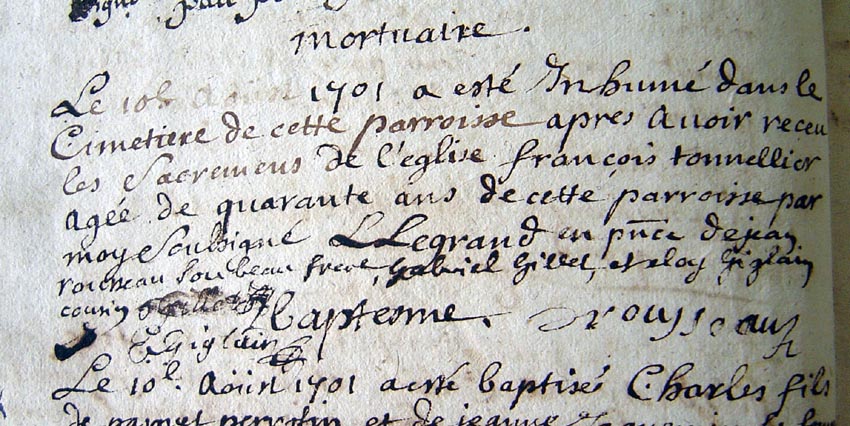 mortuaire.
Le 10e Aoust 1701 a esté Inhumé dans le
Cimetiere de cette parroisse apres Avoir receu
les Sacremens de l'eglise françois tonnellier
agée de quarante ans de cette parroisse par
moy Soubsigné LLegrand en pnce de jean
rousseau Son beau frere, Gabriel Gillet, et eloy Giglain
cousin
Baptesme. Rousseau
E Giglain
Le 10e. Aoüst 1701 a esté baptisés Charles fils
et de jeanne